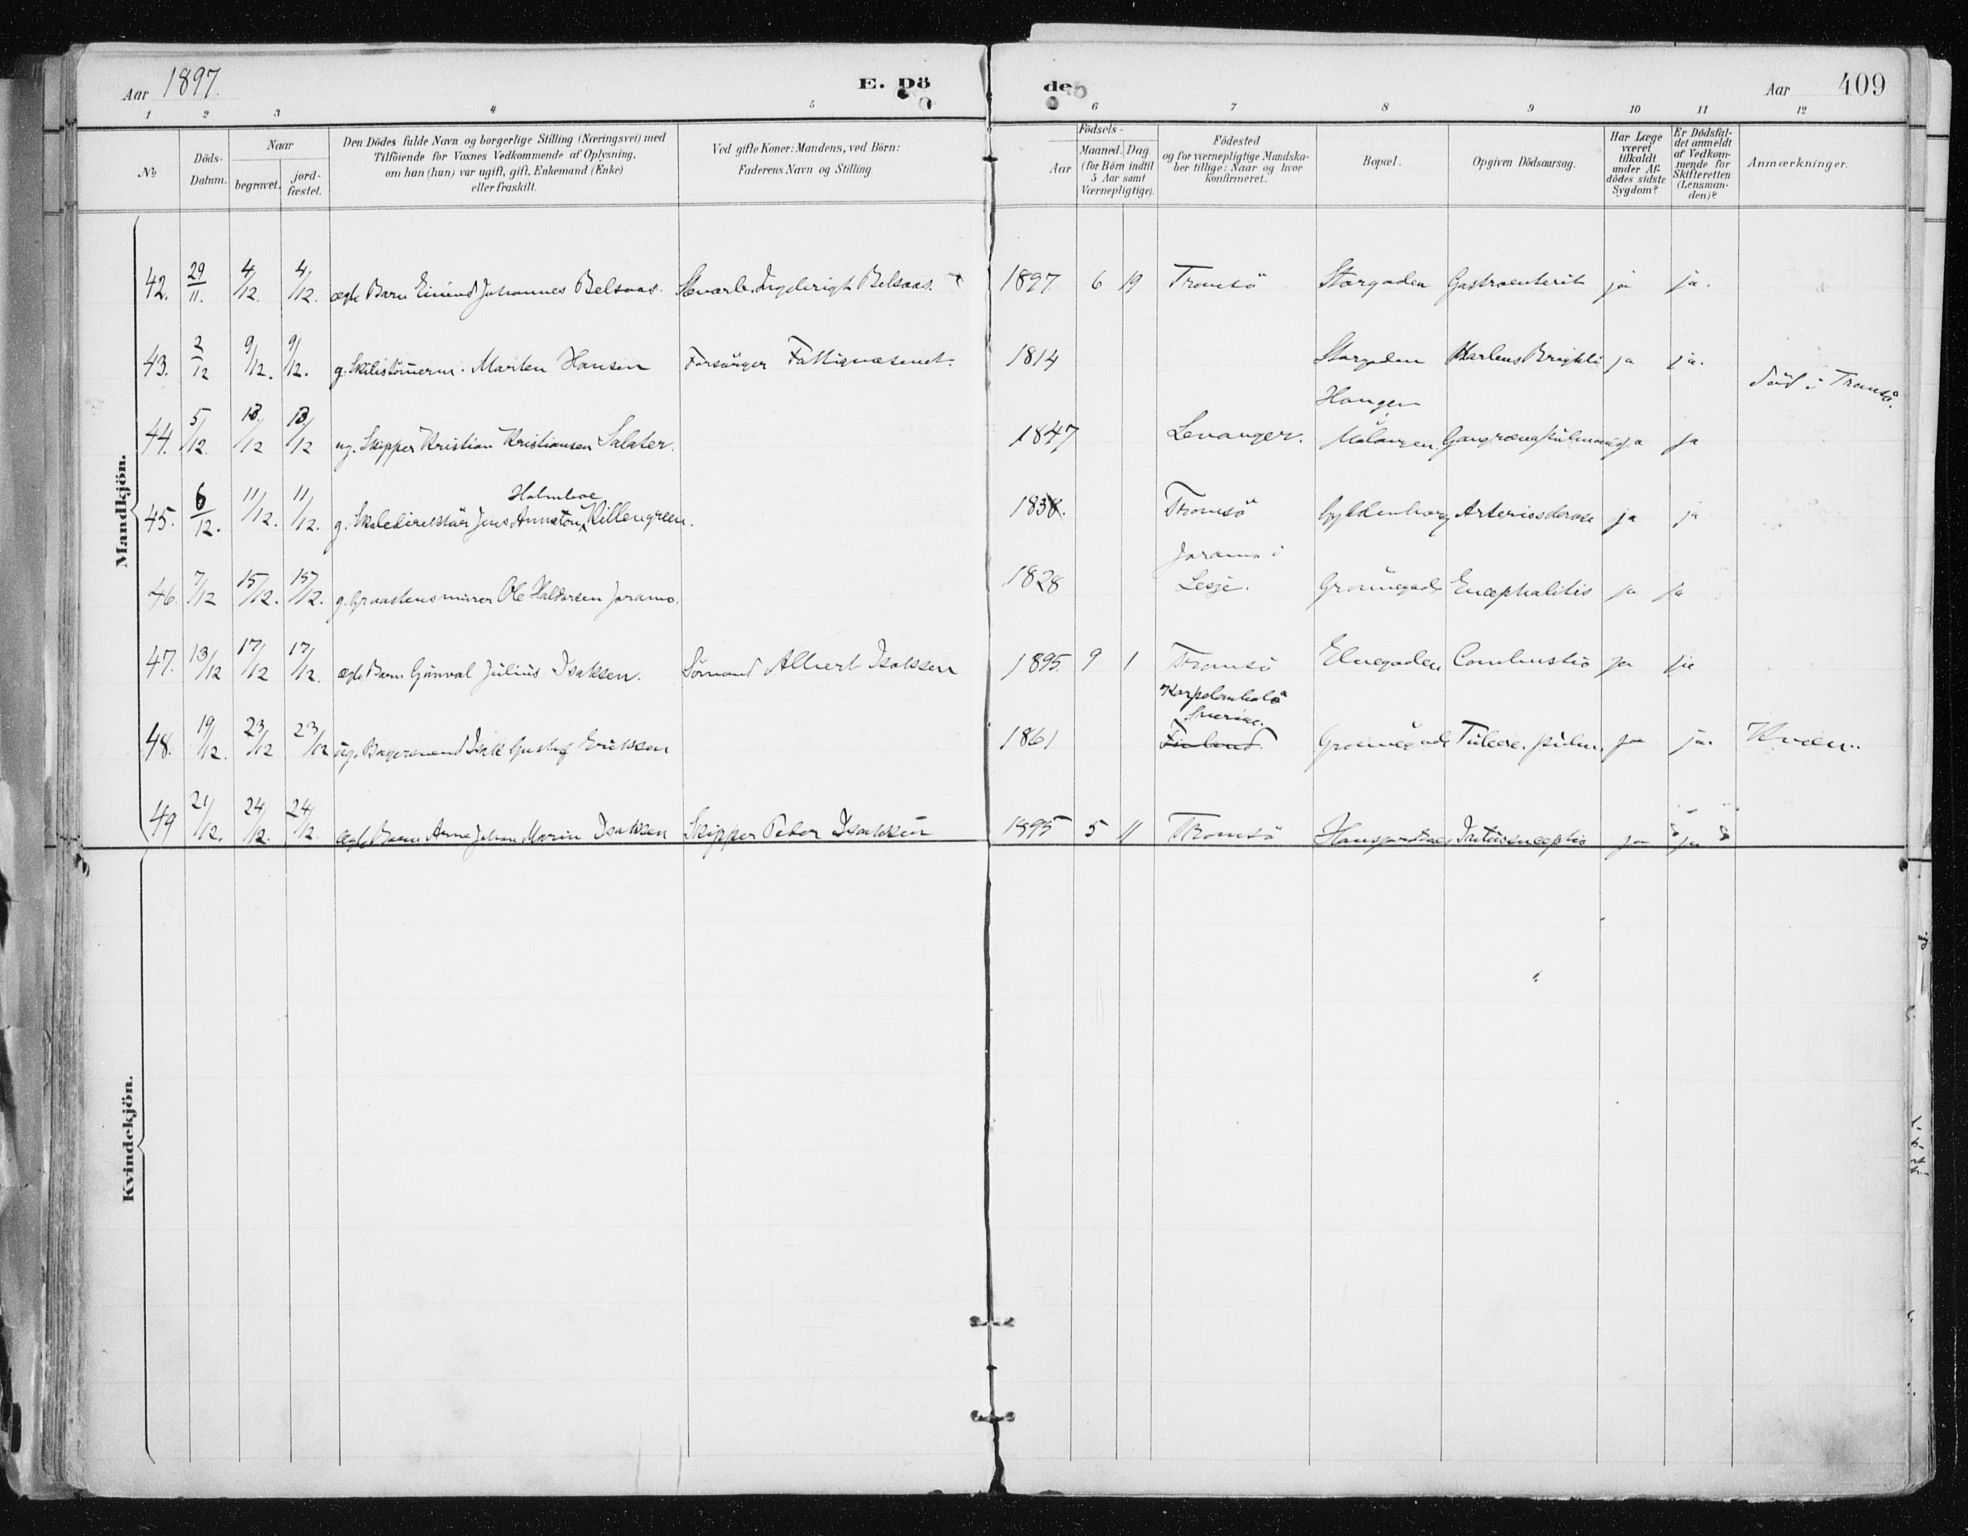 Aar 1897. E. Dö de Aar 409
1 2 3 4 5 6 7 8 9 10 11 12
№
Döds-
Datum.
Naar
begravet. jord-
fæstet.
Den Dödes fulde Navn og borgerlige Stilling (Næringsvei) med
Tilföiende for Voxnes Vedkommende af Oplysning,
om han (hun) var ugift, gift, Enkemand (Enke)
eller fraskilt.
Ved gifte Koner: Mandens, ved Börn:
Faderens Navn og Stilling.
Födsels-
Aar Maaned. Dag
(for Börn indtil
5 Aar samt
Værnepligtige).
Födested
og for værnepligtige Mandska-
ber tillige: Naar og hvor
konfirmeret.
Bopæl.
Opgiven Dödsaarsag.
Har Læge
været
tilkaldt
under Af-
dödes sidste
Sygdom?
Er Dödsfal-
det anmeldt
af Vedkom-
mende for
Skifteretten
(Lensman-
den)?
Anmærkninger.
Mandkjön.
42. 29/11. 4/12. 4/12. ægte Barn Johannes Belsaas. Belsaas. 1897 6 19 Tromsö Storgaden Gastroenterit ja ja.
43. 2/12 9/12. 9/12. g. Morten Hansen Forsörger Fattigvæsenet. 1814 Storgaden Morbus Brightii ja ja.
död i Tromsö.
44. 5/12. 13/12 13/12 ug. Skipper Kristian Kristiansen Salater. 1847 Levanger. Malangen. Gangræna pulmonis ja ja
Holmboe
45. 6/12. 11/12. 11/12. g. Skoledirektör Jens Killengreen. 183 Tromsö Gyldenborg Arteriosclerose ja ja
Joramo i
46. 7/12 15/12. 15/12. g. Graastensmurer Ole Haldorsen Joramo. 1828 Lesje. Grönnegade Encephalitis ja ja
47. 13/12 17/12 17/12. ægte Barn Gunval Julius Isaksen. Sömand Albert Isaksen 1895. 9 1 Tromsö Elvegaden Combustio ja ja
Sverige.
48. 19/12. 23/12 23/12 ug. Bagersvend Isak Gustaf Eriksson 1861 Finland. Grönnegade Tuberc. pulm. ja ja. Kvæn.
49 21/12. 24/12. 24/12. ægte Barn Arne Johan Marin Isaksen Skipper Peder Isaksen 1895 5 11 Tromsö ja ja
Kvindekjön.